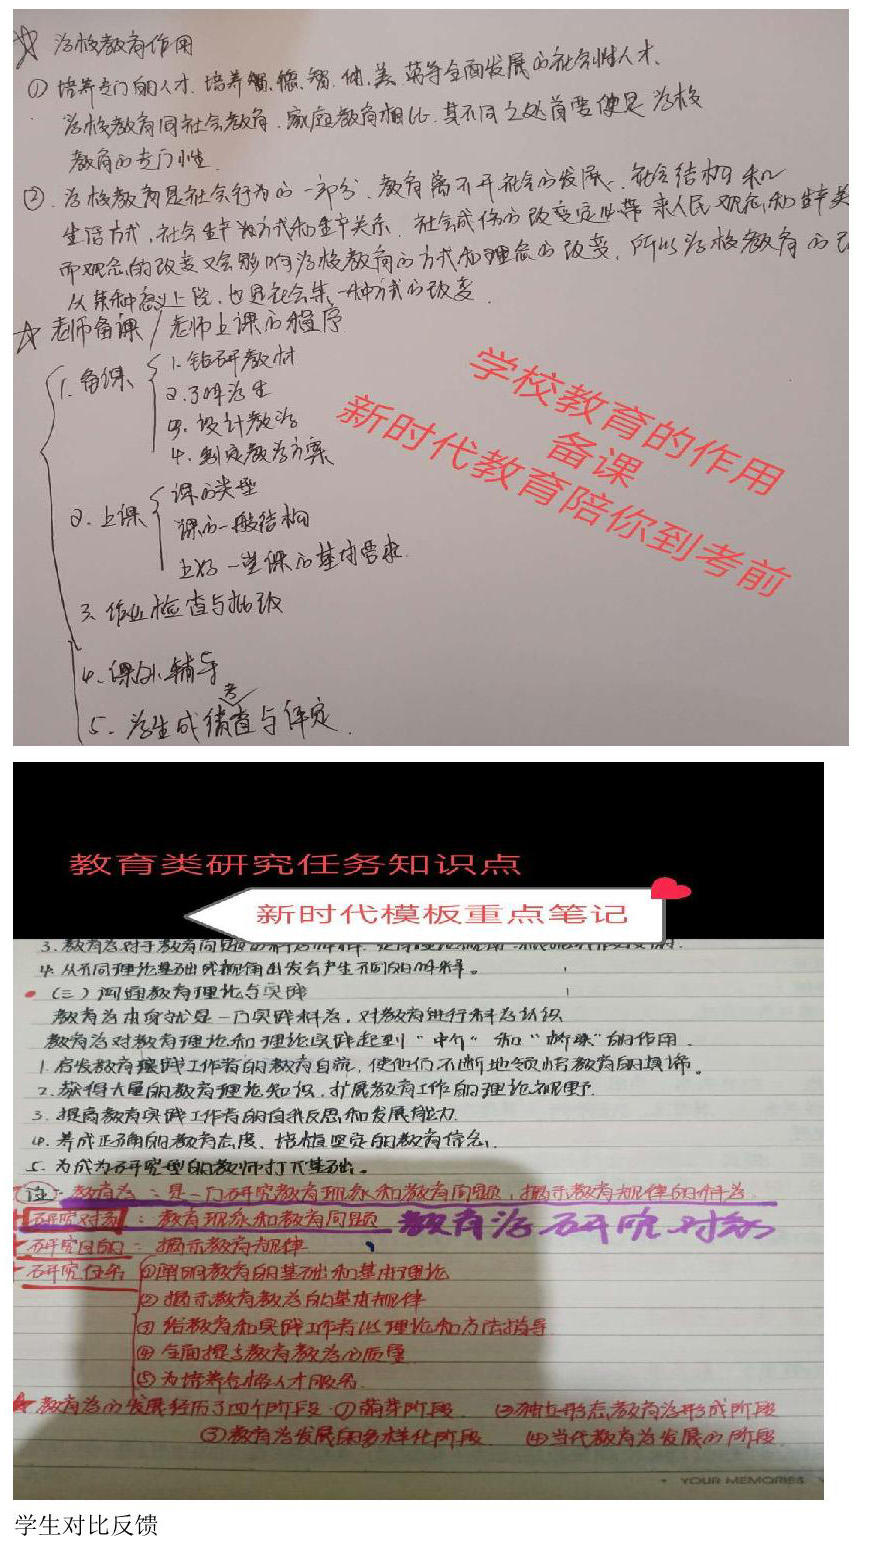 ☆ 学校教育作用
① 培养专门的人才. 培养德、智、体、美、劳等全面发展的社会性人才、
学校教育同社会教育、家庭教育相比, 其不同之处首要便是学校
教育的专门性.
②. 学校教育是社会行为的一部分, 教育离不开社会的发展、社会结构和
生活方式, 社会生产方式和生产关系. 社会成份的改变定必带来人民观念和生产关
而观念的改变又会影响学校教育的方式和理念的改变, 所以学校教育的
从某种意义上说, 也是社会某一种方式的改变.
☆ 老师备课/老师上课的程序
1. 备课
1. 钻研教材
2. 了解学生
3. 设计教法
4. 制定教学方案
2. 上课
课的类型
课的一般结构
上好一堂课的基本要求.
3. 作业检查与批改
4. 课外辅导
5. 学生成绩考查与评定.
学校教育的作用
备课
新时代教育陪你到考前
教育类研究任务知识点
新时代模板重点笔记
3. 教育学对于教育问题的科学解释
4. 从不同理论基础或视角出发会产生不同的解释。
(三) 沟通教育理论与实践
教育学本身就是一门实践科学, 对教育进行科学认识
教育学对教育理论和理论实践起到“中介”和“桥梁”的作用.
1. 启发教育实践工作者的教育自觉, 使他们不断地领悟教育的真谛。
2. 获得大量的教育理论知识, 扩展教育工作的理论视野.
3. 提高教育实践工作者的自我反思和发展能力.
4. 养成正确的教育态度、培植坚定的教育信念.
5. 为成为研究型的教师打下基础。
注: 教育学: 是一门研究教育现象和教育问题, 揭示教育规律的科学.
研究对象: 教育现象和教育问题 教育学研究对象
研究目的: 揭示教育规律
研究任务 ①阐明教育的基础和基本理论
② 揭示教育教学的基本规律
③ 给教育和实践工作者以理论和方法指导
④ 全面提高教育教学的质量
⑤ 为培养合格人才服务.
★ 教育学的发展经历了四个阶段: ①萌芽阶段. ②独立形态教育学形成阶段
③教育学发展的多样化阶段. ④当代教育学发展的阶段.
YOUR MEMORIES
学生对比反馈